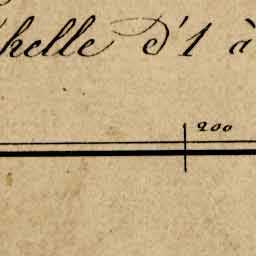 helle d'1 à
200